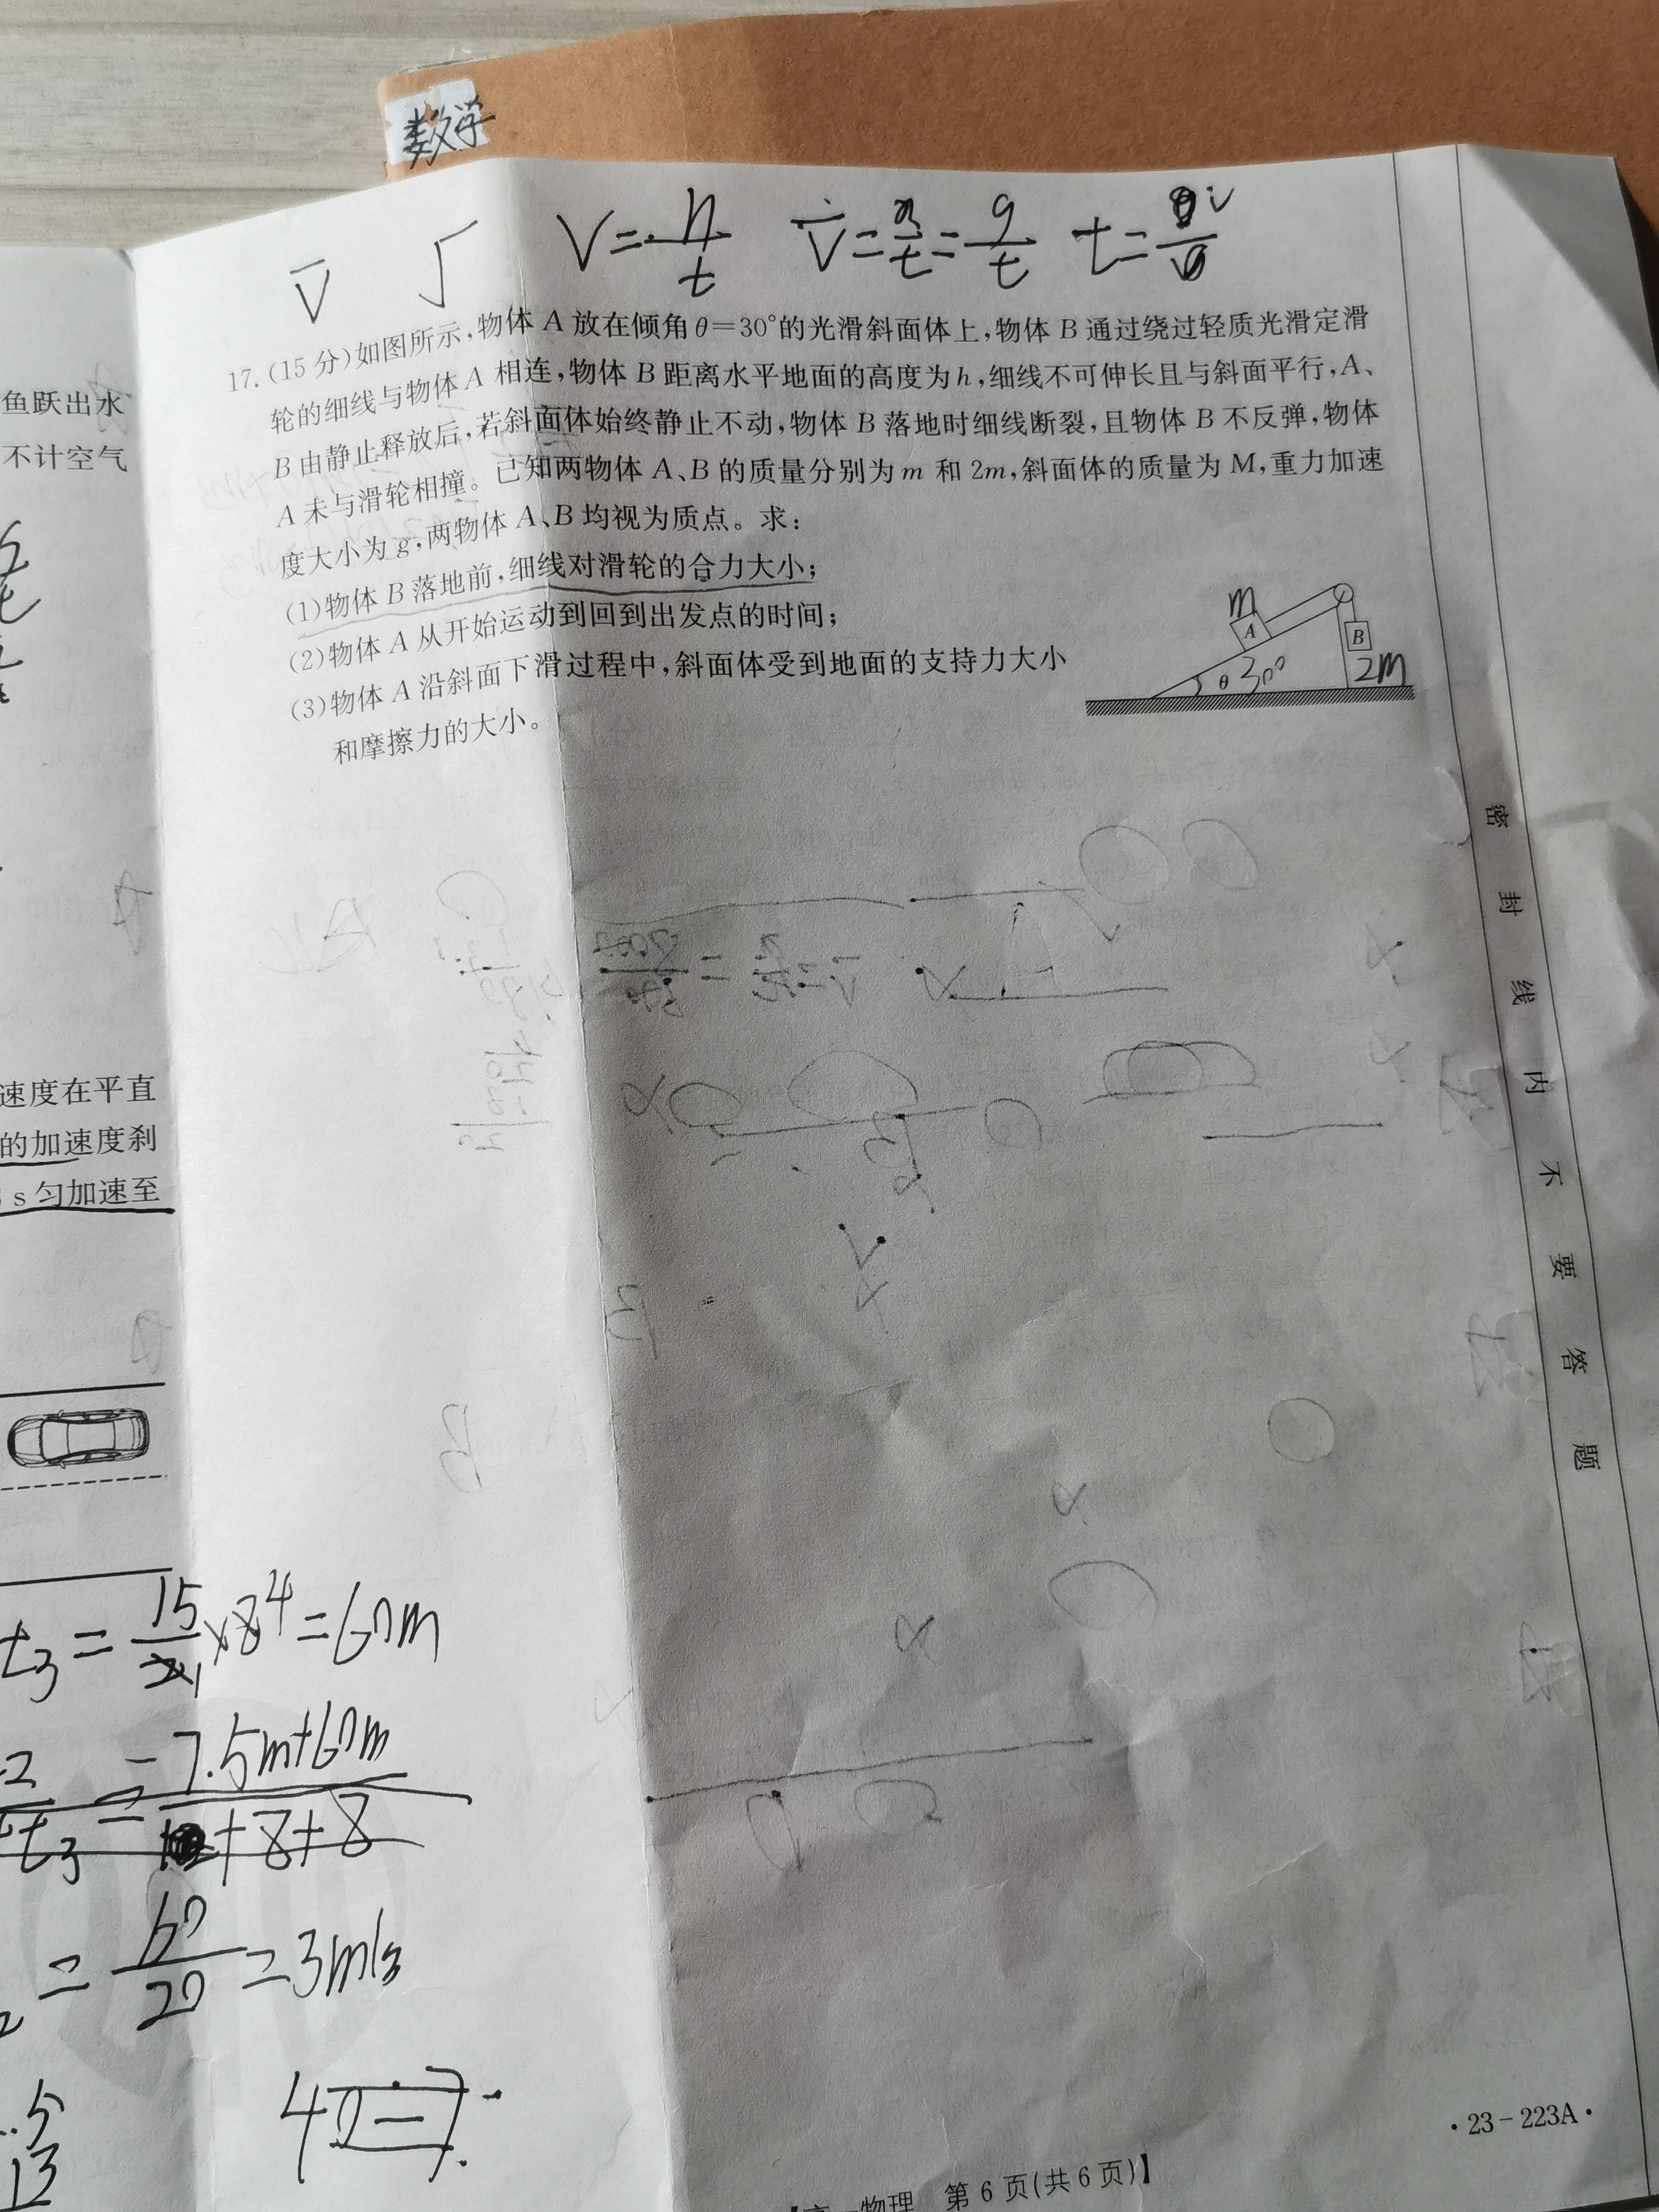 数学
V̄ √ V=h/t V̄=x/t=9/t
鱼跃出水
不计空气
17.(15分)如图所示,物体A放在倾角θ=30°的光滑斜面体上,物体B通过绕过轻质光滑定滑
轮的细线与物体A相连,物体B距离水平地面的高度为h,细线不可伸长且与斜面平行,A、
B由静止释放后,若斜面体始终静止不动,物体B落地时细线断裂,且物体B不反弹,物体
A未与滑轮相撞。已知两物体A、B的质量分别为m和2m,斜面体的质量为M,重力加速
度大小为g,两物体A、B均视为质点。求:
(1)物体B落地前,细线对滑轮的合力大小;
(2)物体A从开始运动到回到出发点的时间;
(3)物体A沿斜面下滑过程中,斜面体受到地面的支持力大小
和摩擦力的大小。
m
A
B
θ 30°
2m
密封线内不要答题
速度在平直
的加速度刹
s匀加速至
t3=15/2×8=60m
-7.5m+60m
t3 +8+8
=60/20=3m/s
4
13
·23-223A·
物理 第6页(共6页)】